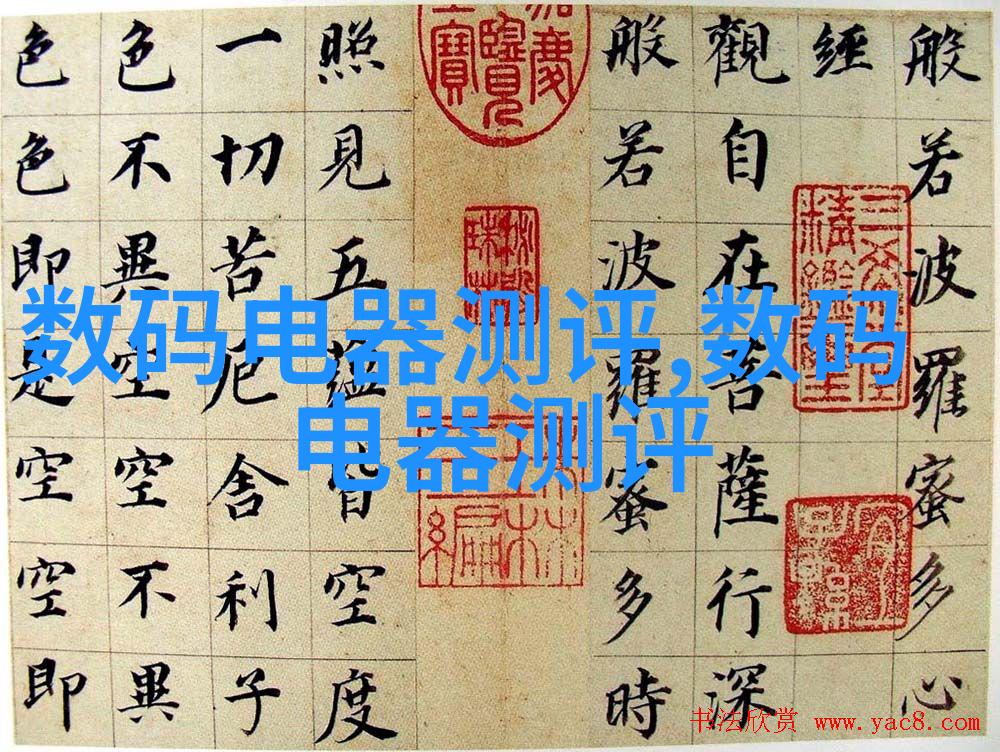 数码电器测评,数码
电器测评
般若波羅蜜多心
經
觀自在菩薩行深
般若波羅蜜多時
照見五蘊皆空度
一切苦厄舍利子
色不異空空不異
色色即是空空即
三希堂精鑑璽
书法欣赏 www.yac8.com